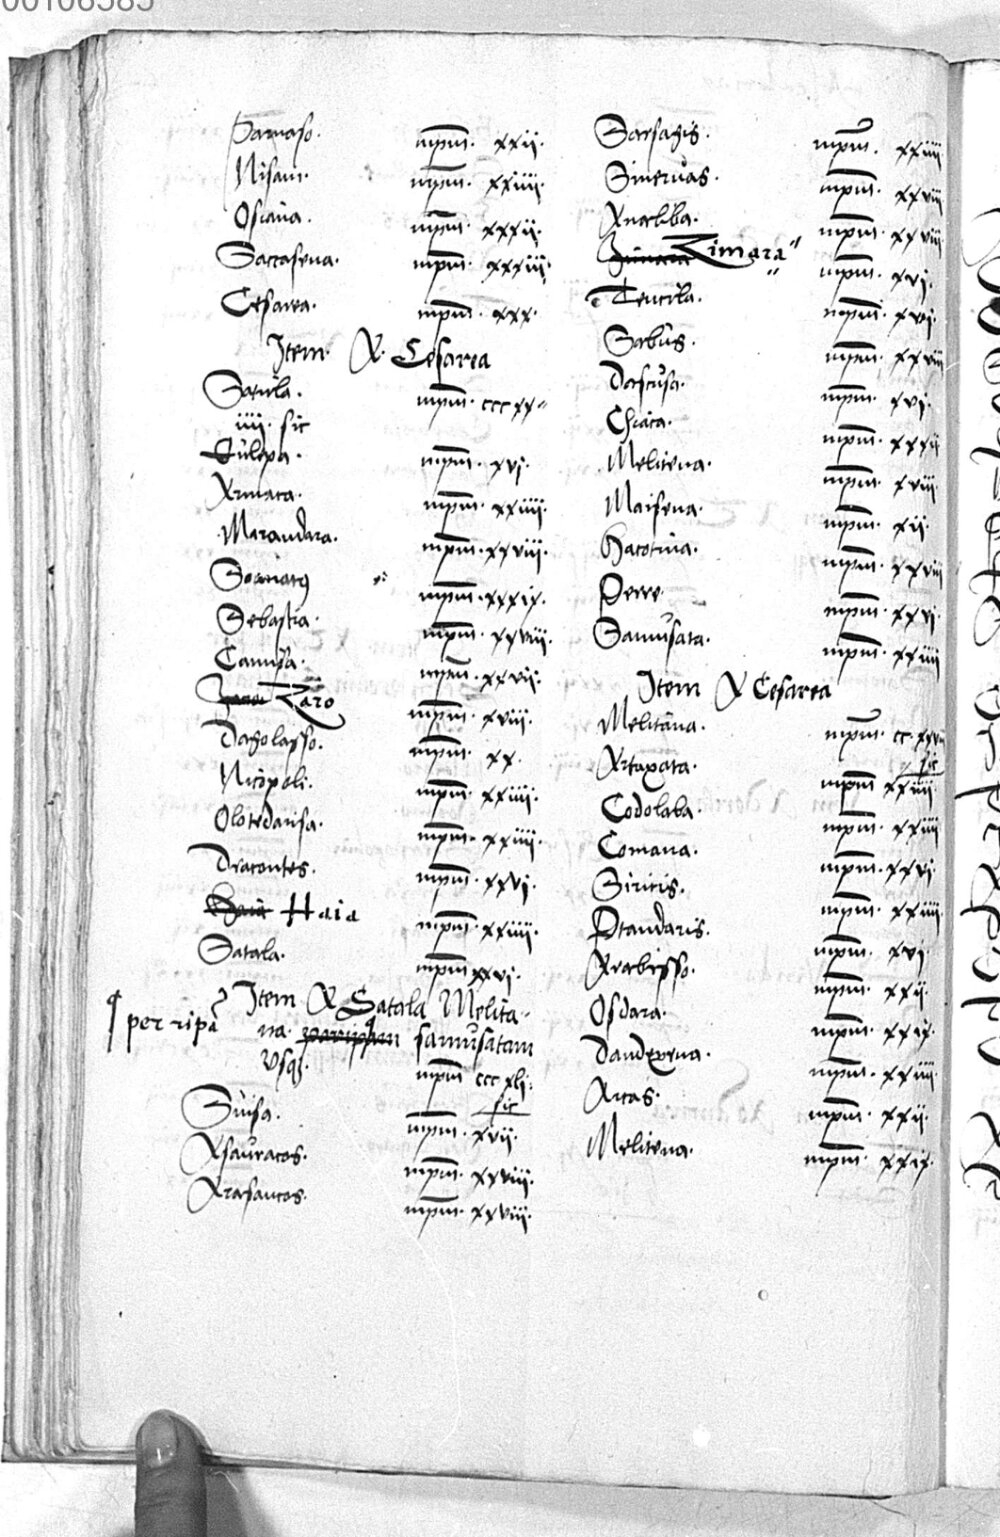 Parnaso. mpm. xxii.
Nisam. mpm. xxiiii.
Osiana. mpm. xxxii.
Saccasena. mpm. xxxii.
Cesarea. mpm. xxx.
Item. A. Cesarea
Satala. mpm. cccxx
iiii. sic
Eulepa. mpm. xvi.
Armaca. mpm. xxiiii.
Marandara. mpm. xxviii.
mpm. xxxix.
Sebastia. mpm. xxviii.
Camisa. mpm. xxvii.
Zaro mpm. xviii.
Dagolasso. mpm. xx.
Nicopoli. mpm. xxiiii.
Olotedarisa. mpm. xxiiii.
Dracontes. mpm. xxvi.
Haia mpm. xxiiii.
Satala. mpm xxvi.
Item A Satala Melita
per ripã
na. samusatam
usq mpm cccxli.
sic
Suisa. mpm. xvii.
Asauracos. mpm. xxviii.
Arasancos. mpm. xxviii.
Carsagis. mpm. xxiiii
Sineruas. mpm. xxviii
Analiba. mpm. xxviii
Zimara mpm. xvi.
Teucila. mpm. xvi.
Sabus. mpm. xxviii
Dascusa. mpm. xvi.
Chiaca. mpm. xxxii
Melitena. mpm. xviii
Maisena. mpm. xii.
Lacotina. mpm. xxviii
Perre. mpm. xxvi.
Samusata. mpm. xxiiii
Item A Cesarea
Melitana. mpm. cc.xxv
sic
Artaxata. mpm xxiiii
Codolaba. mpm. xxiiii
Comana. mpm. xxvi.
Siricis. mpm. xxiiii
Ptandaris. mpm. xvi.
Arabisso. mpm. xxii.
Osdara. mpm. xxix.
Dandexena. mpm. xxiiii
Arcas. mpm. xxii.
Melitena. mpm. xxix.